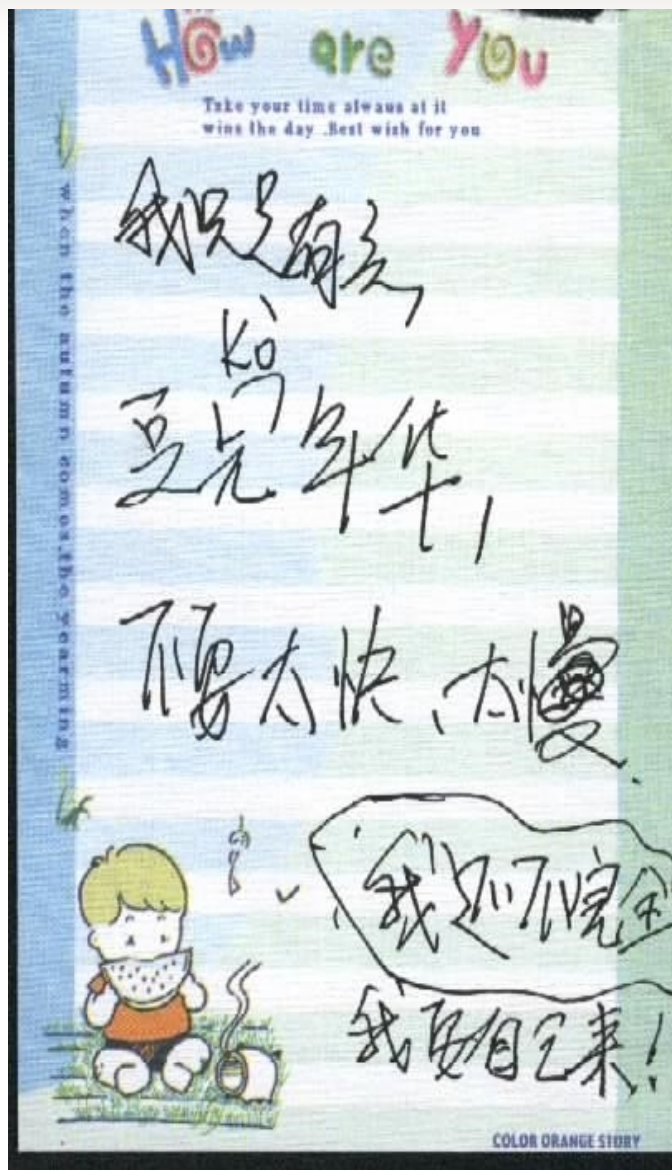 How are You
Take your time alwaus at it
wins the day .Best wish for you
when the autumn comes.the yearming
我只是有点
Ko
豆兒年华,
不要太快、太慢.
我还不完全
我要自己来!
COLOR ORANGE STORY